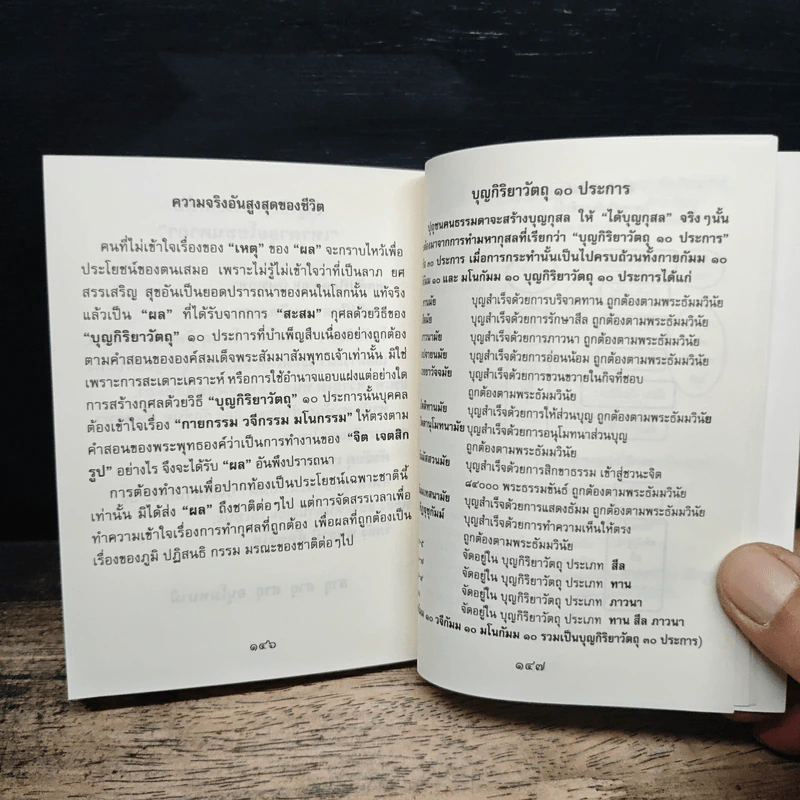 ความจริงอันสูงสุดของชีวิต
คนที่ไม่เข้าใจเรื่องของ “เหตุ” ของ “ผล” จะกราบไหว้เพื่อ
ประโยชน์ของตนเสมอ เพราะไม่รู้ไม่เข้าใจว่าที่เป็นลาภ ยศ
สรรเสริญ สุขอันเป็นยอดปรารถนาของคนในโลกนั้น แท้จริง
แล้วเป็น “ผล” ที่ได้รับจากการ “สะสม” กุศลด้วยวิธีของ
“บุญกิริยาวัตถุ” ๑๐ ประการที่บำเพ็ญสืบเนื่องอย่างถูกต้อง
ตามคำสอนขององค์สมเด็จพระสัมมาสัมพุทธเจ้าเท่านั้น มิใช่
เพราะการสะเดาะเคราะห์ หรือการใช้อำนาจแอบแฝงแต่อย่างใด
การสร้างกุศลด้วยวิธี “บุญกิริยาวัตถุ” ๑๐ ประการนั้นบุคคล
ต้องเข้าใจเรื่อง “กายกรรม วจีกรรม มโนกรรม” ให้ตรงตาม
คำสอนของพระพุทธองค์ว่าเป็นการทำงานของ “จิต เจตสิก
รูป” อย่างไร จึงจะได้รับ “ผล” อันพึงปรารถนา
การต้องทำงานเพื่อปากท้องเป็นประโยชน์เฉพาะชาตินี้
เท่านั้น มิได้ส่ง “ผล” ถึงชาติต่อๆไป แต่การจัดสรรเวลาเพื่อ
ทำความเข้าใจเรื่องการทำกุศลที่ถูกต้อง เพื่อผลที่ถูกต้องเป็น
เรื่องของภูมิ ปฏิสนธิ กรรม มรณะของชาติต่อๆไป
๑๔๖
บุญกิริยาวัตถุ ๑๐ ประการ
ปุถุชนคนธรรมดาจะสร้างบุญกุสล ให้ “ได้บุญกุสล” จริงๆนั้น
ต้องมาจากการทำมหากุสลที่เรียกว่า “บุญกิริยาวัตถุ ๑๐ ประการ”
๓๐ ประการ เมื่อการกระทำนั้นเป็นไปครบถ้วนทั้งกายกัมม ๑๐
๑๐ และ มโนกัมม ๑๐ บุญกิริยาวัตถุ ๑๐ ประการได้แก่
บุญสำเร็จด้วยการบริจาคทาน ถูกต้องตามพระธัมมวินัย
บุญสำเร็จด้วยการรักษาสีล ถูกต้องตามพระธัมมวินัย
บุญสำเร็จด้วยการภาวนา ถูกต้องตามพระธัมมวินัย
บุญสำเร็จด้วยการอ่อนน้อม ถูกต้องตามพระธัมมวินัย
บุญสำเร็จด้วยการขวนขวายในกิจที่ชอบ
ถูกต้องตามพระธัมมวินัย
บุญสำเร็จด้วยการให้ส่วนบุญ ถูกต้องตามพระธัมมวินัย
บุญสำเร็จด้วยการอนุโมทนาส่วนบุญ
ถูกต้องตามพระธัมมวินัย
บุญสำเร็จด้วยการสิกขาธรรม เข้าสู่ชวนะจิต
๘๔๐๐๐ พระธรรมขันธ์ ถูกต้องตามพระธัมมวินัย
บุญสำเร็จด้วยการแสดงธัมม ถูกต้องตามพระธัมมวินัย
บุญสำเร็จด้วยการทำความเห็นให้ตรง
ถูกต้องตามพระธัมมวินัย
จัดอยู่ใน บุญกิริยาวัตถุ ประเภท สีล
จัดอยู่ใน บุญกิริยาวัตถุ ประเภท ทาน
จัดอยู่ใน บุญกิริยาวัตถุ ประเภท ภาวนา
จัดอยู่ใน บุญกิริยาวัตถุ ประเภท ทาน สีล ภาวนา
๑๐ วจีกัมม ๑๐ มโนกัมม ๑๐ รวมเป็นบุญกิริยาวัตถุ ๓๐ ประการ)
๑๔๗